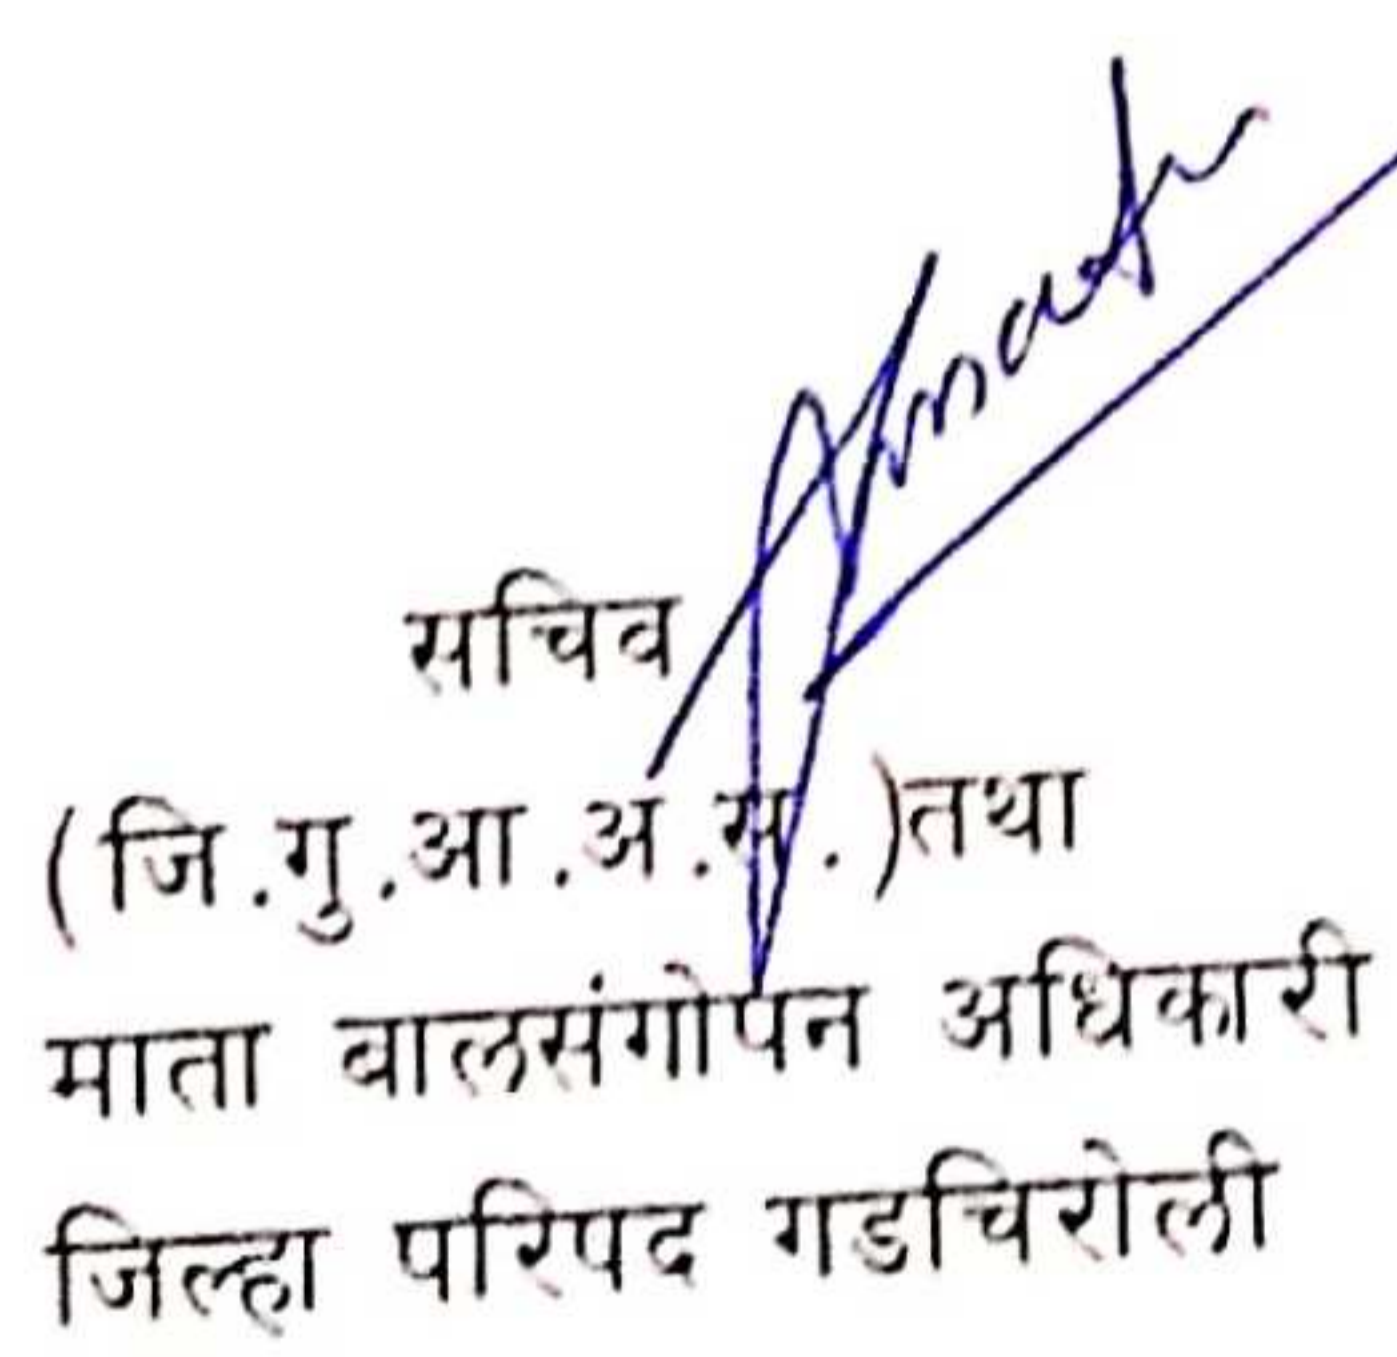 सचिव
(जि.गु.आ.अ.स.)तथा
माता बालसंगोपन अधिकारी
जिल्हा परिषद गडचिरोली